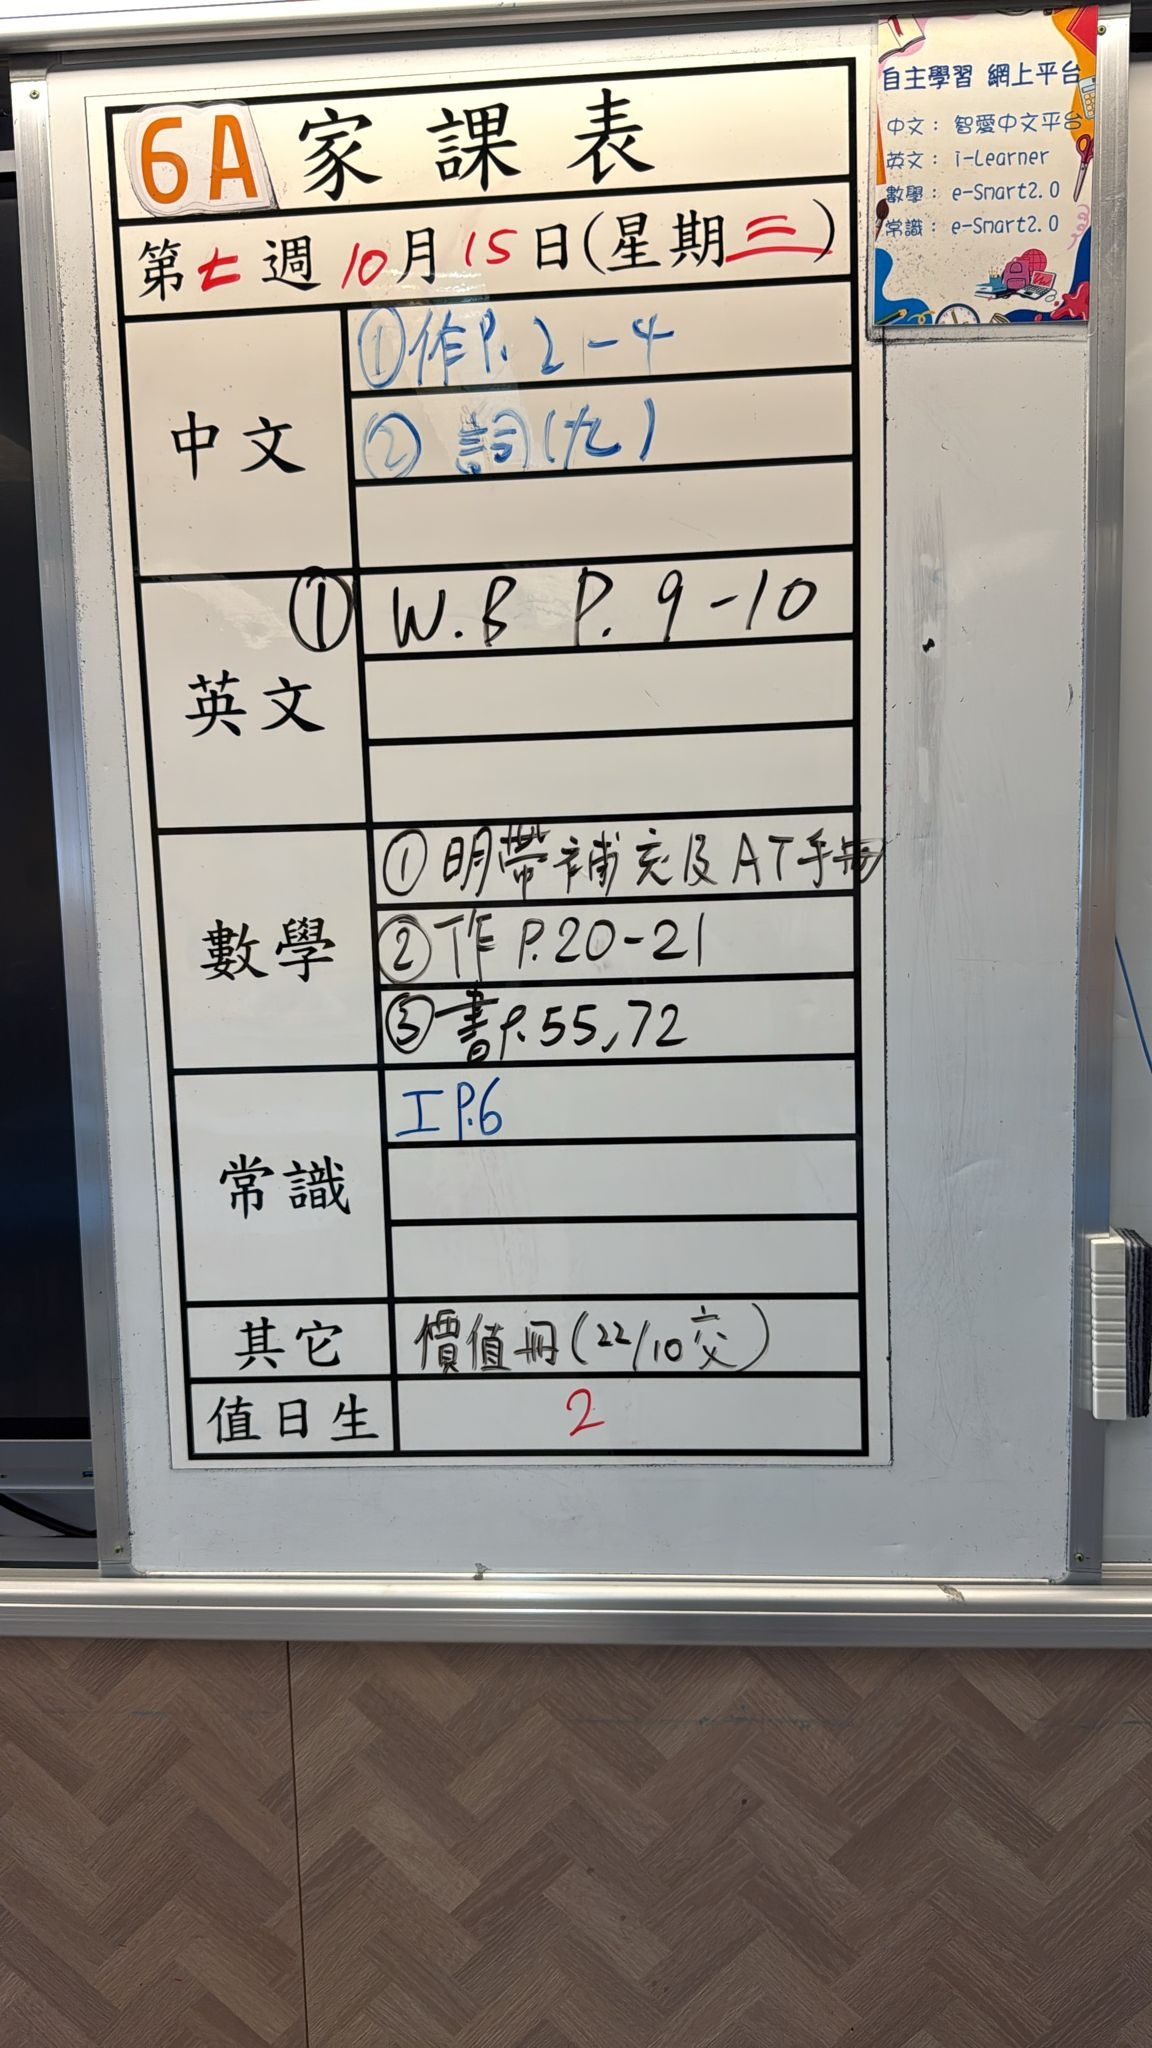 6A 家課表
第七週 10月15日(星期三)
中文
①作P.2-4
②詞(九)
英文
① W.B P.9-10
數學
①明帶補充及AT手冊
②作P.20-21
③書P.55,72
常識
工P.6
其它
價值冊(22/10交)
值日生
2
自主學習 網上平台
中文：智愛中文平台
英文：i-Learner
數學：e-Smart2.0
常識：e-Smart2.0